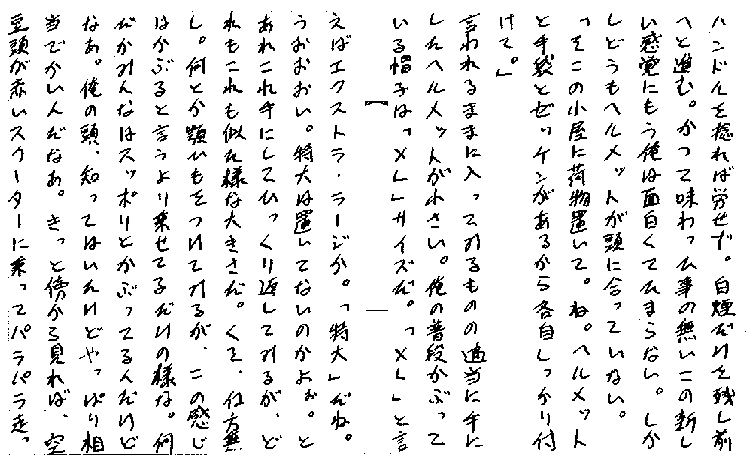 ハンドルを捻れば労せず。白煙だけを残し前
へと進む。かつて味わった事の無いこの新し
い感覚にもう俺は面白くてたまらない。しか
しどうもヘルメットが頭に合っていない。
「そこの小屋に荷物置いて。ね。ヘルメット
と手袋とゼッケンがあるから各自しっかり付
けて。」
言われるままに入ってみるものの適当に手に
したヘルメットが小さい。俺の普段かぶって
いる帽子は「ＸＬ」サイズだ。「ＸＬ」と言
えばエクストラ・ラージか。「特大」だね。
うおおおい。特大は置いてないのかよぉ。と
あれこれ手にしてひっくり返してみるが、ど
れもこれも似た様な大きさだ。くそ、仕方無
し。何とか頭いもをつけてみるが、この感じ
はかぶると言うより乗せてるだけの様な。何
だかみんなはスッポリとかぶってるんだけど
なあ。俺の頭、知ってはいたけどやっぱり相
当でかいんだなあ。きっと傍から見れば、空
豆頭が赤いスクーターに乗ってパラパラ走っ